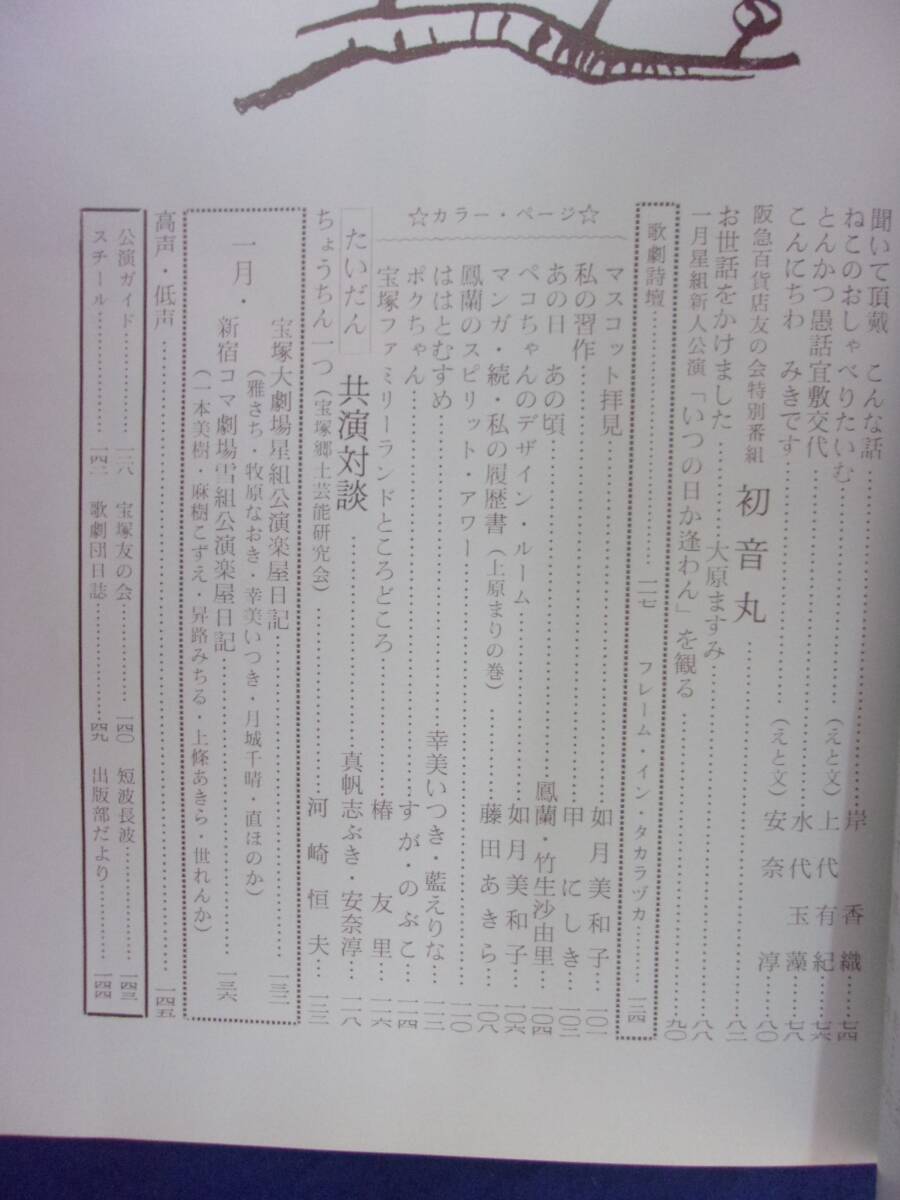 聞いて頂戴　こんな話……岸　香織…七四
ねこのおしゃべりたいむ……（えと文）上代有紀…七六
とんかつ愚話宜敷交代……水代玉藻…七八
こんにちわ　みきです……（えと文）安奈　淳…八〇
阪急百貨店友の会特別番組　初音丸……八二
お世話をかけました……大原ますみ……八八
一月星組新人公演「いつの日か逢わん」を観る……九〇
歌劇詩壇……一二七　フレーム・イン・タカラヅカ……一三四
☆カラー・ページ☆
マスコット拝見……如月美和子…一〇一
私の習作……甲にしき…一〇二
あの日　あの頃……鳳蘭・竹生沙由里…一〇四
ペコちゃんのデザイン・ルーム……如月美和子…一〇六
マンガ・続・私の履歴書（上原まりの巻）……藤田あきら…一〇八
鳳蘭のスピリット・アワー……一一〇
ははとむすめ……幸美いつき・藍えりな…一一二
ボクちゃん……すが・のぶこ…一一四
宝塚ファミリーランドところどころ……椿　友里…一一六
たいだん　共演対談……真帆志ぶき・安奈淳…一一八
ちょうちん一つ（宝塚郷土芸能研究会）……河崎恒夫…一二二
一月・
宝塚大劇場星組公演楽屋日記……一三二
（雅さち・牧原なおき・幸美いつき・月城千晴・直ほのか）
新宿コマ劇場雪組公演楽屋日記……一三六
（一本美樹・麻樹こずえ・昇路みちる・上條あきら・世れんか）
高声・低声……一四五
公演ガイド……一三八　宝塚友の会……一四〇　短波長波……一四三
スチール……一四二　歌劇団日誌……一四九　出版部だより……一四四